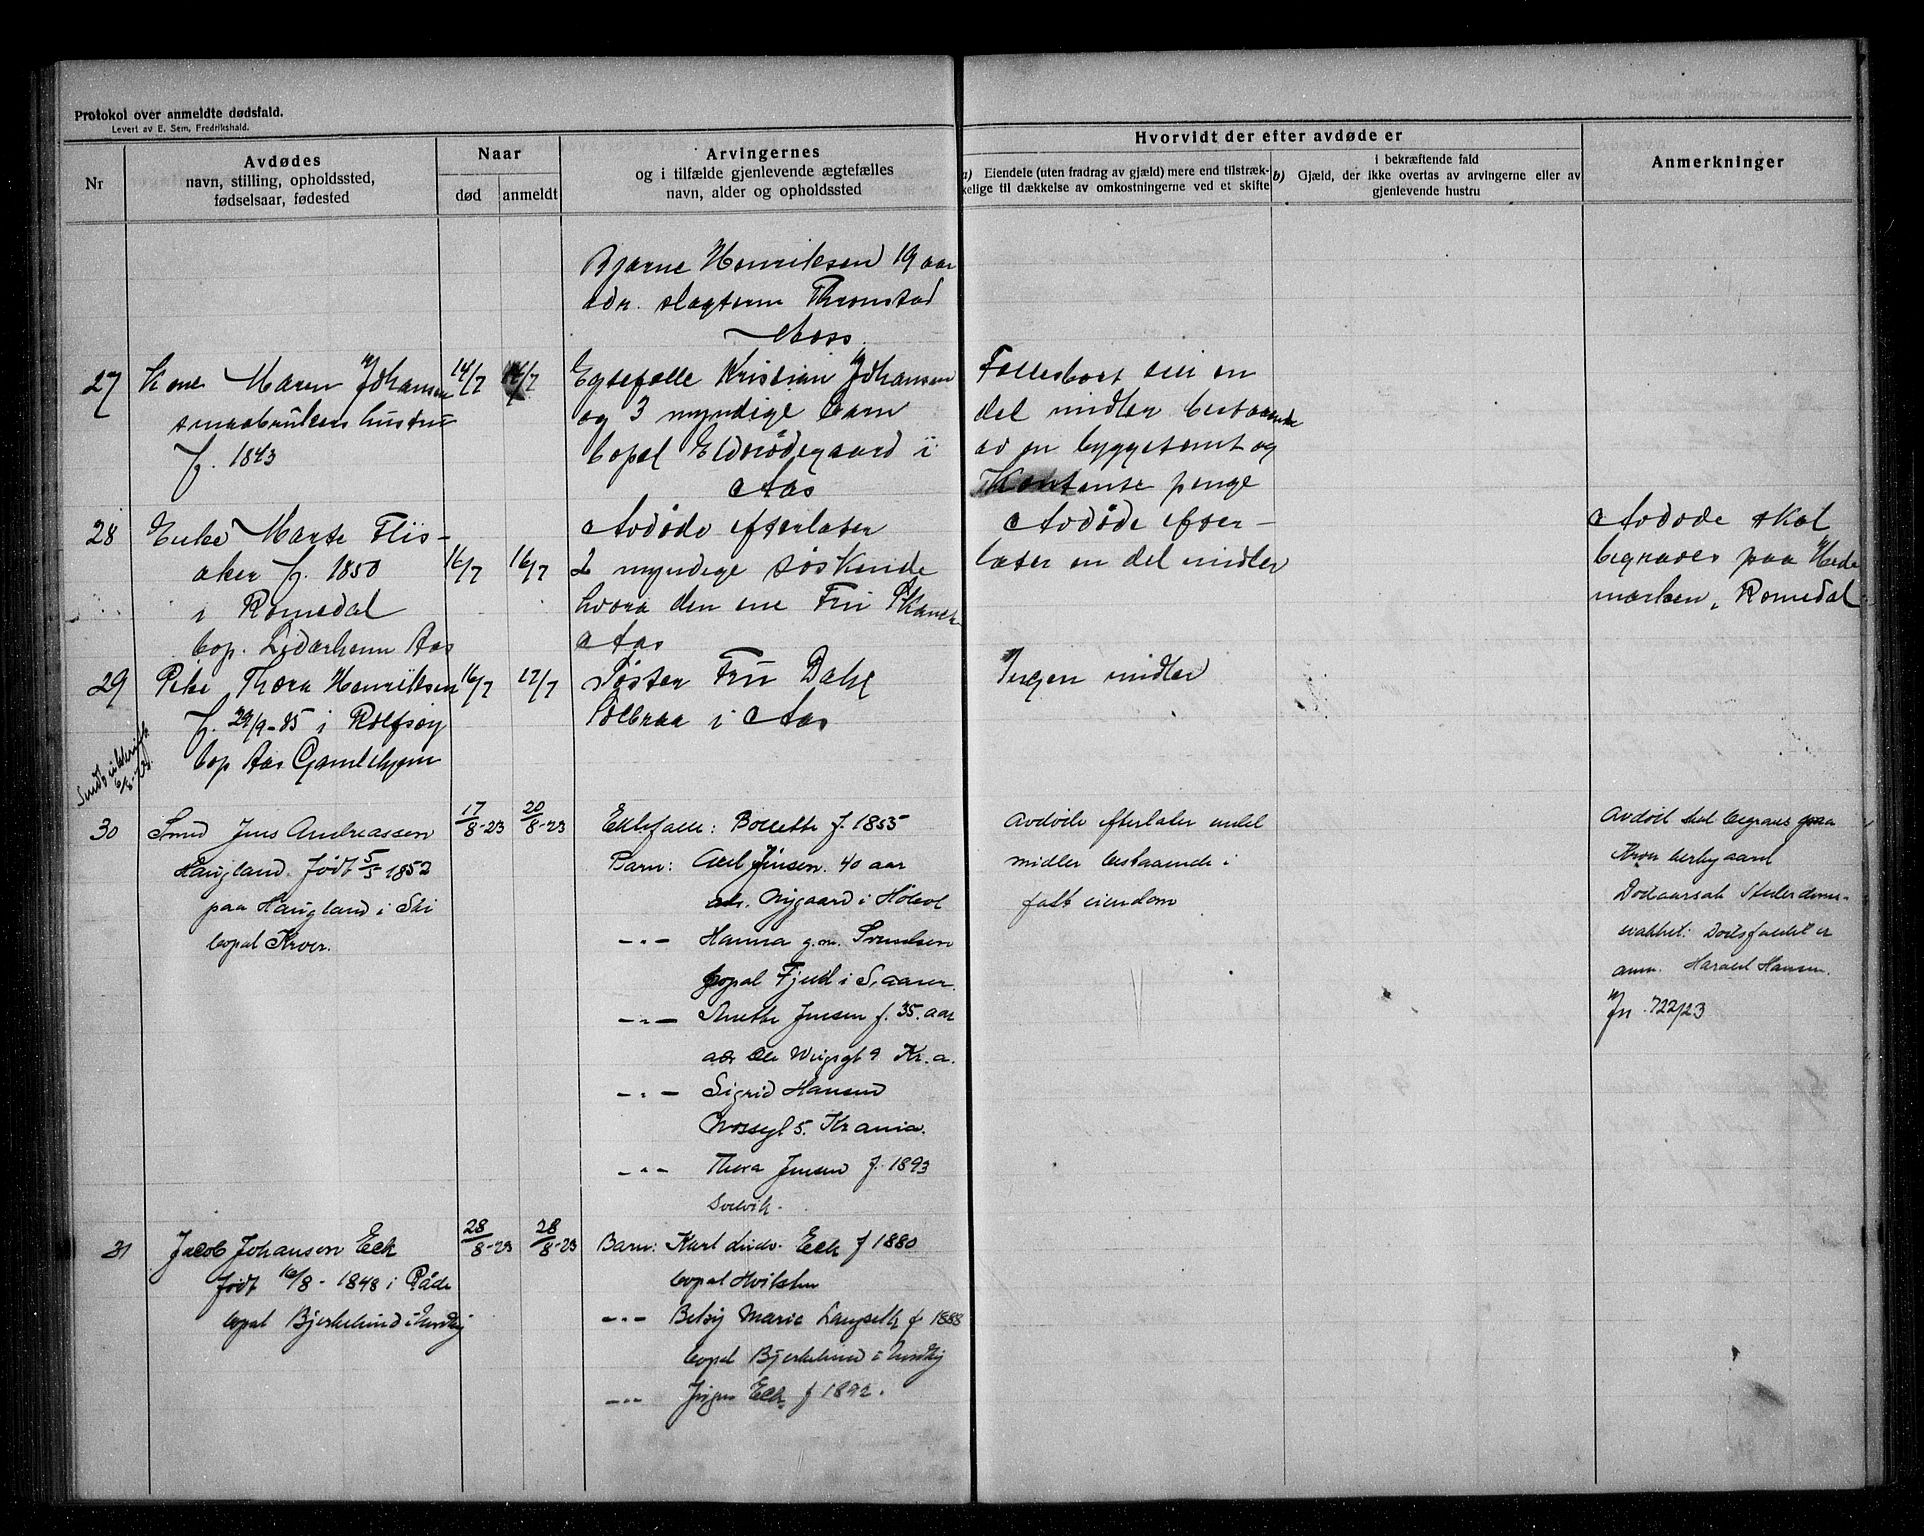 Protokol over anmeldte dødsfald.
Levert av E. Sem, Fredrikshald.
Nr
Avdødes
navn, stilling, opholdssted,
fødselsaar, fødested
Naar
død
anmeldt
Arvingernes
og i tilfælde gjenlevende ægtefælles
navn, alder og opholdssted
Hvorvidt der efter avdøde er
a) Eiendele (uten fradrag av gjæld) mere end tilstræk-
kelige til dækkelse av omkostningerne ved et skifte
i bekræftende fald
b) Gjæld, der ikke overtas av arvingerne eller av
gjenlevende hustru
Anmerkninger
Bjarne Henriksen 19 aar
adr. slagterm Thronstad
Moss
27
Kone Maren Johansen
smaabrukers hustru
f. 1843
14/7
14/7
Egtefælle Kristian Johansen
og 3 myndige barn
bopæl Eldrødegaard i
Aas
Fællesboet eier en
del midler bestaaende
av en byggetomt og
Kontante penge
28
Enke Marte Flis-
aker f. 1850
i Romedal
bop. Liderheim Aas
16/7
16/7
Avdøde efterlater
2 myndige søskende
hvora den ene Fru
Aas
Avdøde efter-
later en del midler
Avdøde skal
begraves paa Hede
marken, Romedal
29
Pike Thora Henriksen
f. 29/9-85 i Rolfsøy
bop Aas Gamlehjem
16/7
17/7
Søster Fru Dahl
Solbraa i Aas
Ingen midler
30
Smed Jens Andreassen
Haugland. Født 5/5 1852
paa Haugland i Ski
bopæl Kroer.
17/8-23
20/8-23
Ektefælle: Bolette f. 1855
Barn: Axel Jensen. 40 aar
adr. Nygaard i Hobøl
-"- Hanna g.m. Svendsen
bopæl Fjeld i
-"- Anette Jensen f. 35. aar
adr Ole 9 Kr.a.
-"- Sigrid Hansen
5. Krania.
-"- Thora Jensen f. 1893
Svelvik.
Avdøde efterlater endel
midler bestaaende i
fast eiendom
Avdøde skal begraves paa
Kroer kirkegaard
Dødsaarsak Alderdoms-
svakhet. Dødsfaldet er
anm. Harald Hansen.
Jn. 722/23
31
Jacob Johansen Eek
født 16/8-1848 i Råde
bopæl Bjerkelund i Vestby
28/8-23
28/8-23
Barn: Karl Ludv. Eek f 1880
bopæl Hvitsten
-"- Betsy Marie Langseth f 1888
bopæl Bjerkelund i Vestby
-"- Jørgen Eek f 1892.